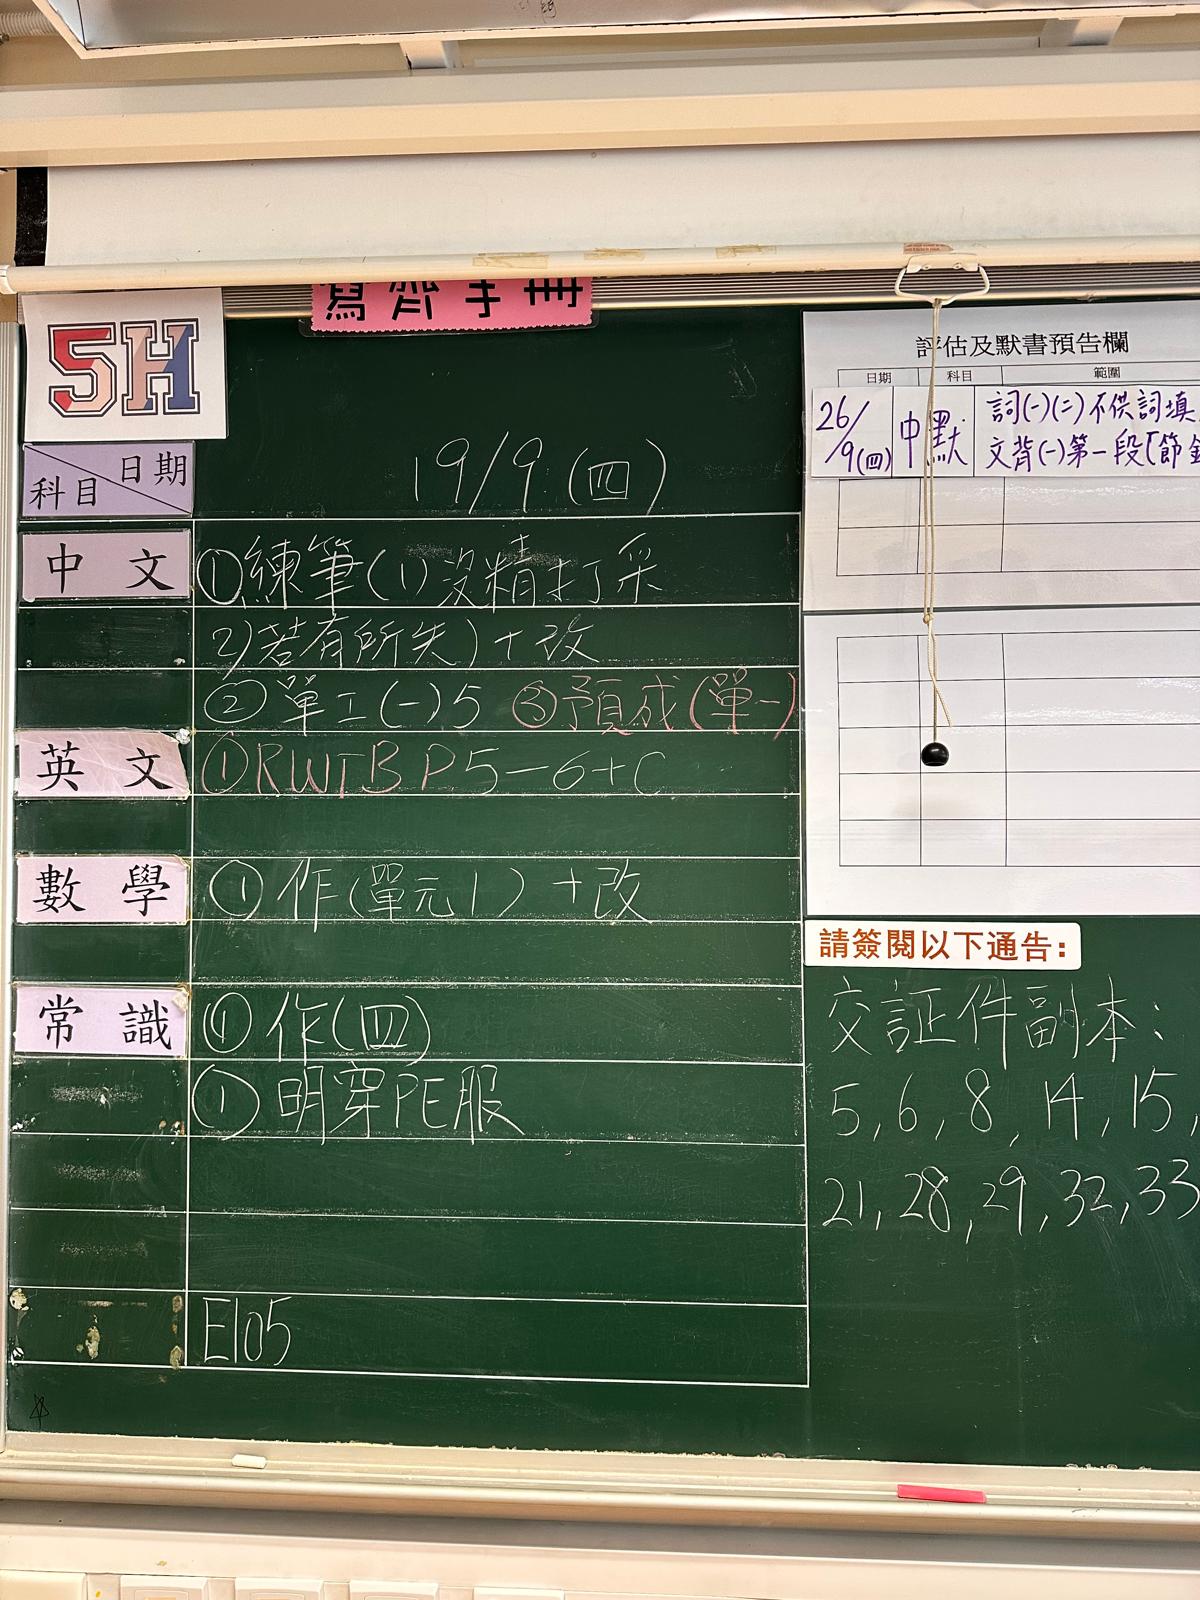 寫齊手冊
5H
日期
科目
19/9 (四)
中文 ①練筆(1)沒精打采
2)若有所失)+改
②單工(一)5 ③預成(單一)
英文 ①RWTB P5-6+C
數學 ①作(單元1) +改
常識 ①作(四)
①明穿PE服
E105
評估及默書預告欄
日期 科目 範圍
26/9(四) 中默 詞(一)(二)不供詞填
文背(一)第一段「節
請簽閱以下通告:
交証件副本:
5, 6, 8, 14, 15,
21, 28, 29, 32, 33